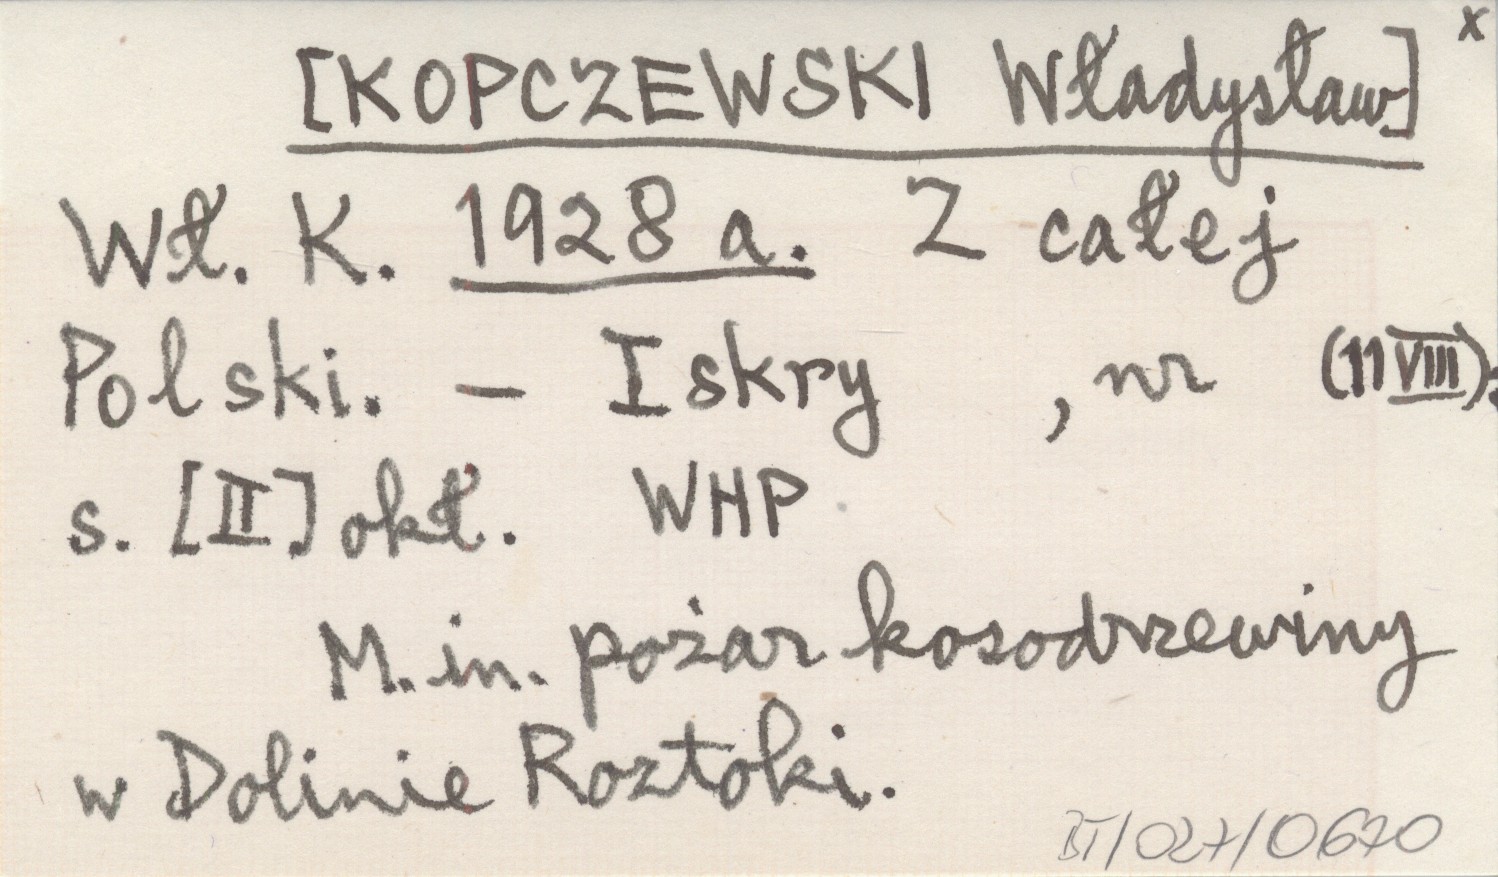 x
[KOPCZEWSKI Władysław]
Wł. K. 1928 a. Z całej
Polski. – Iskry , nr (11 VIII):
s. [II] okł. WHP
M. in. pożar kosodrzewiny
w Dolinie Roztoki.
BT/027/0670